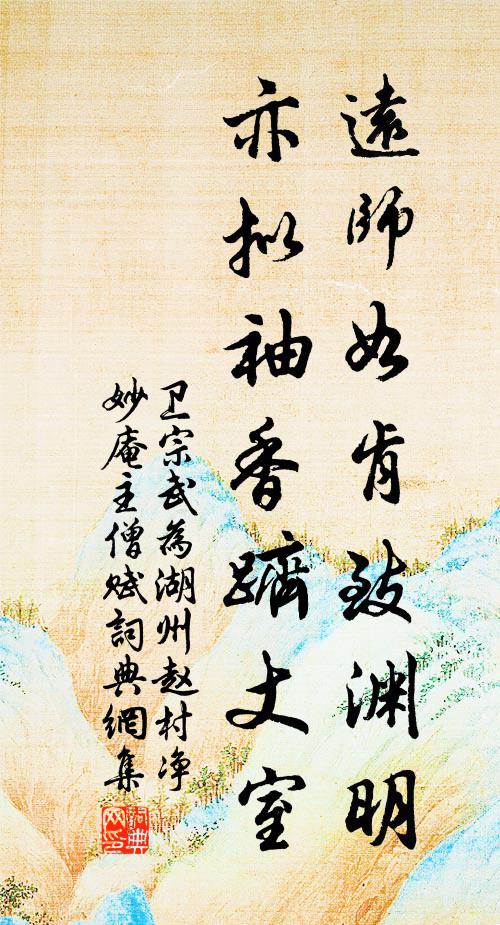 遠師如肯致渊明
亦拟袖香躋丈室
卫宗武為湖州赵村净
妙庵主僧赋詞典網集
詞典